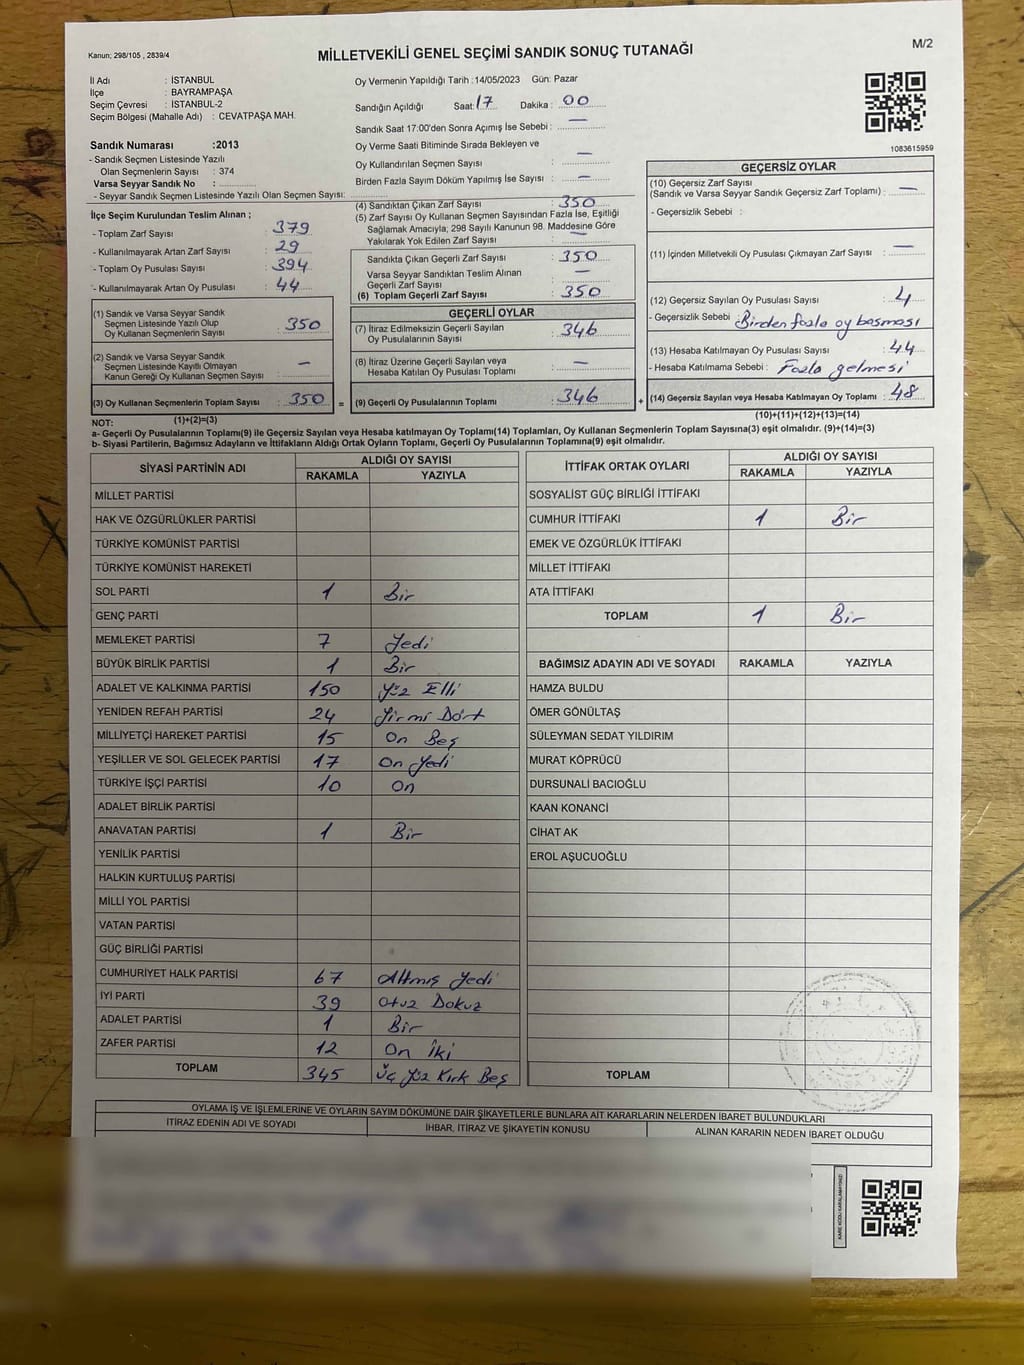 Kanun; 298/105 , 2839/4
MİLLETVEKİLİ GENEL SEÇİMİ SANDIK SONUÇ TUTANAĞI
M/2
İl Adı : İSTANBUL
İlçe : BAYRAMPAŞA
Seçim Çevresi : İSTANBUL-2
Seçim Bölgesi (Mahalle Adı) : CEVATPAŞA MAH.
Sandık Numarası :2013
- Sandık Seçmen Listesinde Yazılı
Olan Seçmenlerin Sayısı : 374
Varsa Seyyar Sandık No :
- Seyyar Sandık Seçmen Listesinde Yazılı Olan Seçmen Sayısı:
Oy Vermenin Yapıldığı Tarih :14/05/2023 Gün: Pazar
Sandığın Açıldığı Saat: 17 Dakika : 00
Sandık Saat 17:00'den Sonra Açımış İse Sebebi : —
Oy Verme Saati Bitiminde Sırada Bekleyen ve
Oy Kullandırılan Seçmen Sayısı : —
Birden Fazla Sayım Döküm Yapılmış İse Sayısı : —
1083615959
İlçe Seçim Kurulundan Teslim Alınan ;
- Toplam Zarf Sayısı : 379
- Kullanılmayarak Artan Zarf Sayısı : 29
- Toplam Oy Pusulası Sayısı : 394
- Kullanılmayarak Artan Oy Pusulası : 44
(1) Sandık ve Varsa Seyyar Sandık
Seçmen Listesinde Yazılı Olup
Oy Kullanan Seçmenlerin Sayısı : 350
(2) Sandık ve Varsa Seyyar Sandık
Seçmen Listesinde Kayıtlı Olmayan
Kanun Gereği Oy Kullanan Seçmen Sayısı : —
(3) Oy Kullanan Seçmenlerin Toplam Sayısı : 350 =
(1)+(2)=(3)
(4) Sandıktan Çıkan Zarf Sayısı : 350
(5) Zarf Sayısı Oy Kullanan Seçmen Sayısından Fazla İse, Eşitliği
Sağlamak Amacıyla; 298 Sayılı Kanunun 98. Maddesine Göre
Yakılarak Yok Edilen Zarf Sayısı : —
Sandıkta Çıkan Geçerli Zarf Sayısı : 350
Varsa Seyyar Sandıktan Teslim Alınan
Geçerli Zarf Sayısı : —
(6) Toplam Geçerli Zarf Sayısı : 350
GEÇERLİ OYLAR
(7) İtiraz Edilmeksizin Geçerli Sayılan
Oy Pusulalarının Sayısı : 346
(8) İtiraz Üzerine Geçerli Sayılan veya
Hesaba Katılan Oy Pusulası Toplamı : —
(9) Geçerli Oy Pusulalarının Toplamı : 346 +
GEÇERSİZ OYLAR
(10) Geçersiz Zarf Sayısı
(Sandık ve Varsa Seyyar Sandık Geçersiz Zarf Toplamı) : —
- Geçersizlik Sebebi :
(11) İçinden Milletvekili Oy Pusulası Çıkmayan Zarf Sayısı : —
(12) Geçersiz Sayılan Oy Pusulası Sayısı : 4
- Geçersizlik Sebebi : Birden fazla oy basması
(13) Hesaba Katılmayan Oy Pusulası Sayısı : 44
- Hesaba Katılmama Sebebi : Fazla gelmesi
(14) Geçersiz Sayılan veya Hesaba Katılmayan Oy Toplamı : 48
(10)+(11)+(12)+(13)=(14)
NOT:
a- Geçerli Oy Pusulalarının Toplamı(9) ile Geçersiz Sayılan veya Hesaba katılmayan Oy Toplamı(14) Toplamları, Oy Kullanan Seçmenlerin Toplam Sayısına(3) eşit olmalıdır. (9)+(14)=(3)
b- Siyasi Partilerin, Bağımsız Adayların ve İttifakların Aldığı Ortak Oyların Toplamı, Geçerli Oy Pusulalarının Toplamına(9) eşit olmalıdır.
SİYASİ PARTİNİN ADI ALDIĞI OY SAYISI
RAKAMLA YAZIYLA
MİLLET PARTİSİ
HAK VE ÖZGÜRLÜKLER PARTİSİ
TÜRKİYE KOMÜNİST PARTİSİ
TÜRKİYE KOMÜNİST HAREKETİ
SOL PARTİ 1 Bir
GENÇ PARTİ
MEMLEKET PARTİSİ 7 Yedi
BÜYÜK BİRLİK PARTİSİ 1 Bir
ADALET VE KALKINMA PARTİSİ 150 Yüz Elli
YENİDEN REFAH PARTİSİ 24 Yirmi Dört
MİLLİYETÇİ HAREKET PARTİSİ 15 On Beş
YEŞİLLER VE SOL GELECEK PARTİSİ 17 On Yedi
TÜRKİYE İŞÇİ PARTİSİ 10 On
ADALET BİRLİK PARTİSİ
ANAVATAN PARTİSİ 1 Bir
YENİLİK PARTİSİ
HALKIN KURTULUŞ PARTİSİ
MİLLİ YOL PARTİSİ
VATAN PARTİSİ
GÜÇ BİRLİĞİ PARTİSİ
CUMHURİYET HALK PARTİSİ 67 Altmış Yedi
İYİ PARTİ 39 Otuz Dokuz
ADALET PARTİSİ 1 Bir
ZAFER PARTİSİ 12 On İki
TOPLAM 345 Üç Yüz Kırk Beş
İTTİFAK ORTAK OYLARI ALDIĞI OY SAYISI
RAKAMLA YAZIYLA
SOSYALİST GÜÇ BİRLİĞİ İTTİFAKI
CUMHUR İTTİFAKI 1 Bir
EMEK VE ÖZGÜRLÜK İTTİFAKI
MİLLET İTTİFAKI
ATA İTTİFAKI
TOPLAM 1 Bir
BAĞIMSIZ ADAYIN ADI VE SOYADI RAKAMLA YAZIYLA
HAMZA BULDU
ÖMER GÖNÜLTAŞ
SÜLEYMAN SEDAT YILDIRIM
MURAT KÖPRÜCÜ
DURSUNALİ BACIOĞLU
KAAN KONANCİ
CİHAT AK
EROL AŞUCUOĞLU
TOPLAM
OYLAMA İŞ VE İŞLEMLERİNE VE OYLARIN SAYIM DÖKÜMÜNE DAİR ŞİKAYETLERLE BUNLARA AİT KARARLARIN NELERDEN İBARET BULUNDUKLARI
İTİRAZ EDENİN ADI VE SOYADI İHBAR, İTİRAZ VE ŞİKAYETİN KONUSU ALINAN KARARIN NEDEN İBARET OLDUĞU